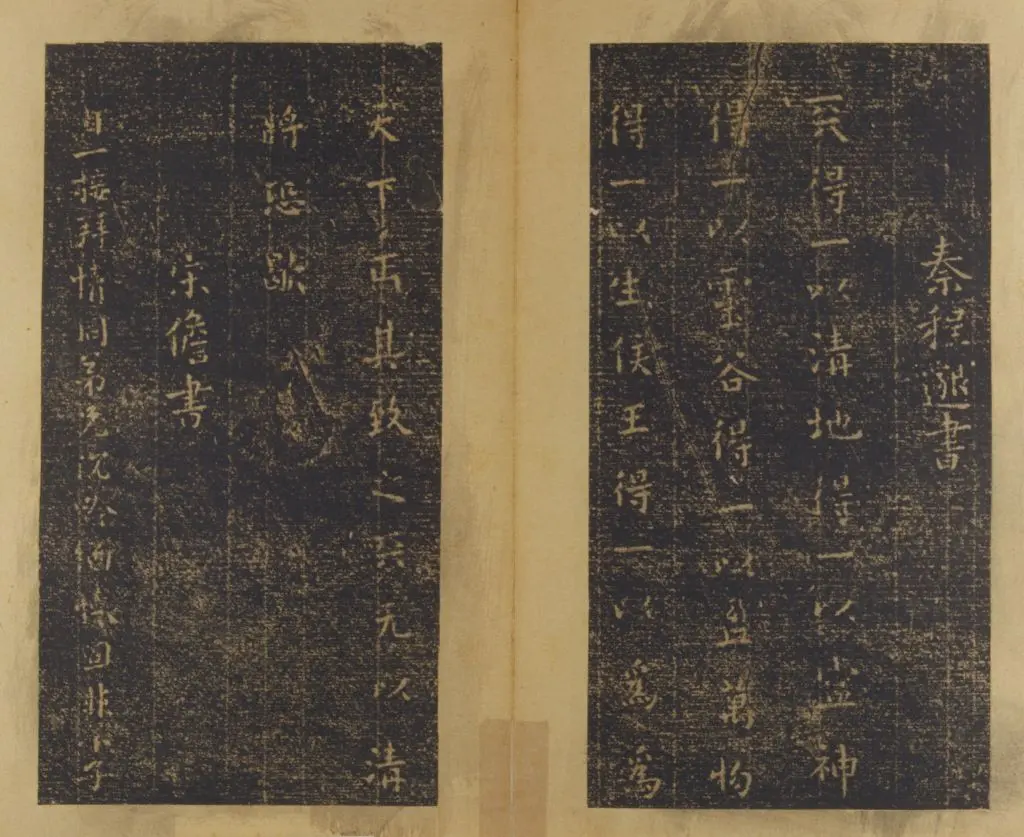 秦程邈書
天得一以清地得一以寧神
得一以靈谷得一以盈萬物
得一以生侯王得一以爲爲
天下正其致之天无以清
將恐
宋儋書
自一接拜情同弟兄沉吟緬懷非小子